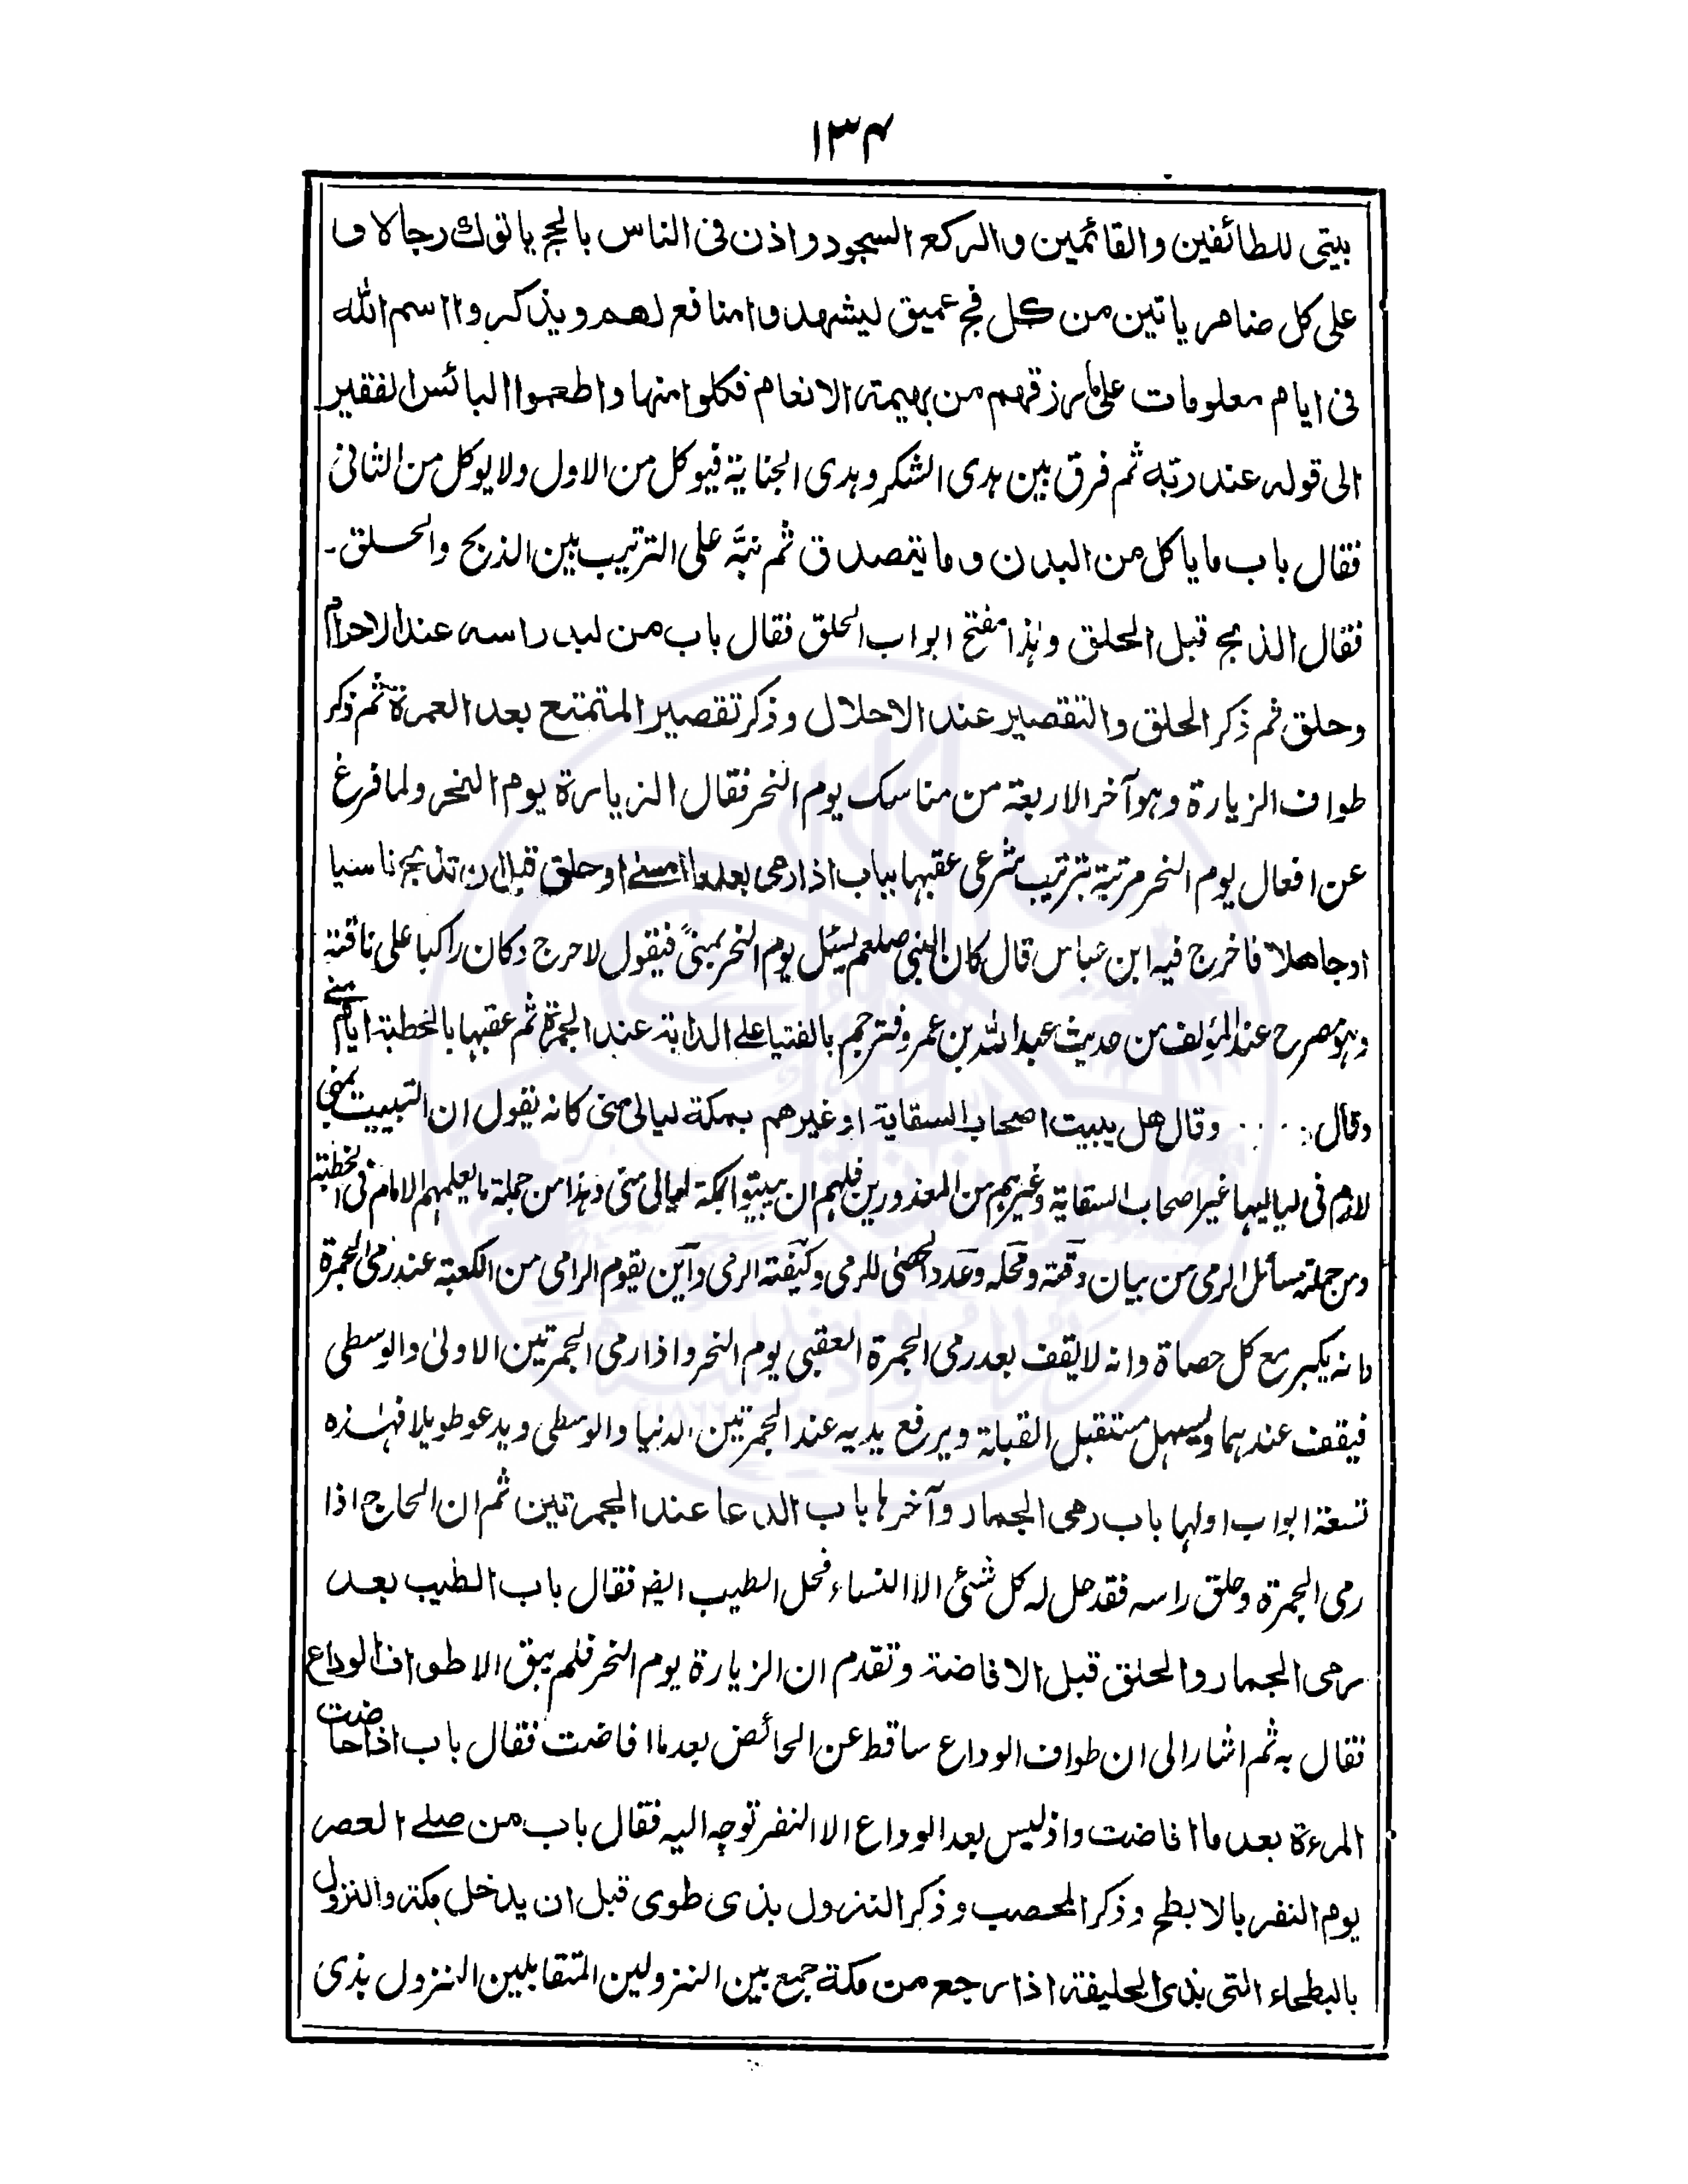 ۱۳۴
بيتى للطائفين والقائمين والركع السجود واذن فى الناس بالحج ياتوك رجالا و
على كل ضامر ياتين من كل فج عميق ليشهدوا منافع لهم ويذكروا اسم الله
فى ايام معلومات على ما رزقهم من بهيمة الانعام فكلوا منها واطعموا البائس الفقير
الى قوله عند ربه ثم فرق بين هدى الشكر وهدى الجناية فيوكل من الاول ولا يوكل من الثانى
فقال باب ما ياكل من البدن وما يتصدق ثم نبَّه على الترتيب بين الذبح والحلق۔
فقال الذبح قبل الحلق وہذا مفتح ابواب الحلق فقال باب من لبد راسه عند الاحرام
وحلق ثم ذكر الحلق والتقصير عند الاحلال وذكر تقصير المتمتع بعد العمرة ثم ذكر
طواف الزيارة وہو آخر الاربعة من مناسك يوم النحر فقال الزيارة يوم النحر ولما فرغ
عن افعال يوم النحر مرتبة بترتيب شرعى عقبہا بباب اذا رمى بعد ما امسے او حلق قبل ان تذبح ناسيا
او جاهلا فاخرج فيه ابن عباس قال كان النبى صلعم يسئل يوم النحر بمنىً فيقول لا حرج وكان راكبا على ناقته
وہو مصرح عند المؤلف من حديث عبد الله بن عمرو فترجم بالفتيا علے الدابة عند الجمرة ثم عقبہا بالخطبة ايام منے
وقال : وقال هل يبيت اصحاب السقاية او غيرهم بمكة ليالى منى كانه يقول ان التبييت بمنى
لازم فى لياليہا غير اصحاب السقاية وغيرہم من المعذورين فلہم ان يبيتوا بمكة ليالى منى وہذا من جملة ما يعلمہم الامام فى الخطبة
ومن جملة مسائل الرمى من بيان وقته ومحله وعدد الحصى للرمى وكيفته الرمى وأين يقوم الرامى من الكعبة عند رمى الجمرة
وانه يكبر مع كل حصاة وانه لا يقف بعد رمى الجمرة العقبى يوم النحر واذا رمى الجمرتين الاولىٰ والوسطى
فيقف عندہما ويسهل مستقبل القبلة ويرفع يديه عند الجمرتين الدنيا والوسطى ويدعو طويلا فہٰذه
تسعة ابواب اولہا باب رمى الجمار وآخرہا باب الدعا عند الجمرتين ثم ان الحاج اذا
رمى الجمرة وحلق راسه فقد حل له كل شئ الا النساء فحل الطيب ايضہ فقال باب الطيب بعد
رمى الجمار والحلق قبل الافاضة وتقدم ان الزيارة يوم النحر فلم يبق الا طواف الوداع
فقال به ثم اشار الى ان طواف الوداع ساقط عن الحائض بعد ما افاضت فقال باب اذا حاضت
المرءة بعد ما افاضت واذ ليس بعد الوداع الا النفر توجه اليه فقال باب من صلے العصر
يوم النفر بالابطح وذكر المحصب وذكر النزول بذى طوى قبل ان يدخل مكة والنزول
بالبطحاء التى بذى الحليفة اذا رجع من مكة جمع بين النزولين المتقابلين النزول بذى